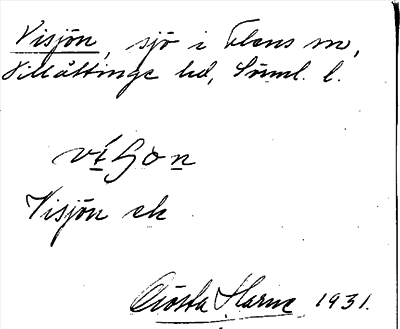 Visjön, sjö i Flens sn,
Villåttinge hd, Söml. l.
Visjön ek
Gösta Harne 1931.